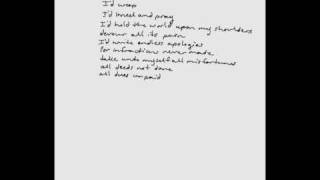 I'd weep
I'd kneel and pray
I'd hold the world upon my shoulders
devour all its pain
I'd write endless apologies
for infractions never made
take unto myself all misfortunes
all deeds not done
all dues unpaid